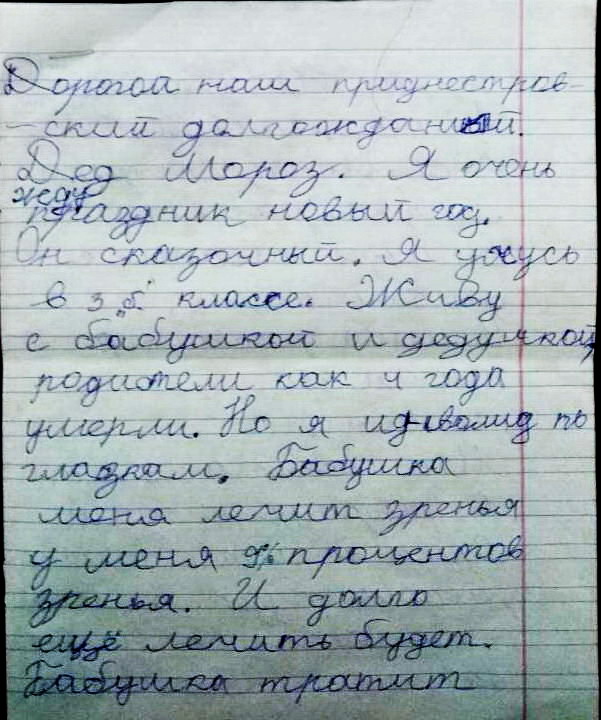 Дорогой наш приднестров-
-ский долгожданный
Дед Мороз. Я очень
жду
праздник новый год.
Он сказочный. Я учусь
в 3 „б" классе. Живу
с бабушкой и дедушкой,
родители как 4 года
умерли. Но я инвалид по
глазкам. Бабушка
меня лечит зренья
у меня % процентов
зренья. И долго
ещё лечить будет.
Бабушка тратит